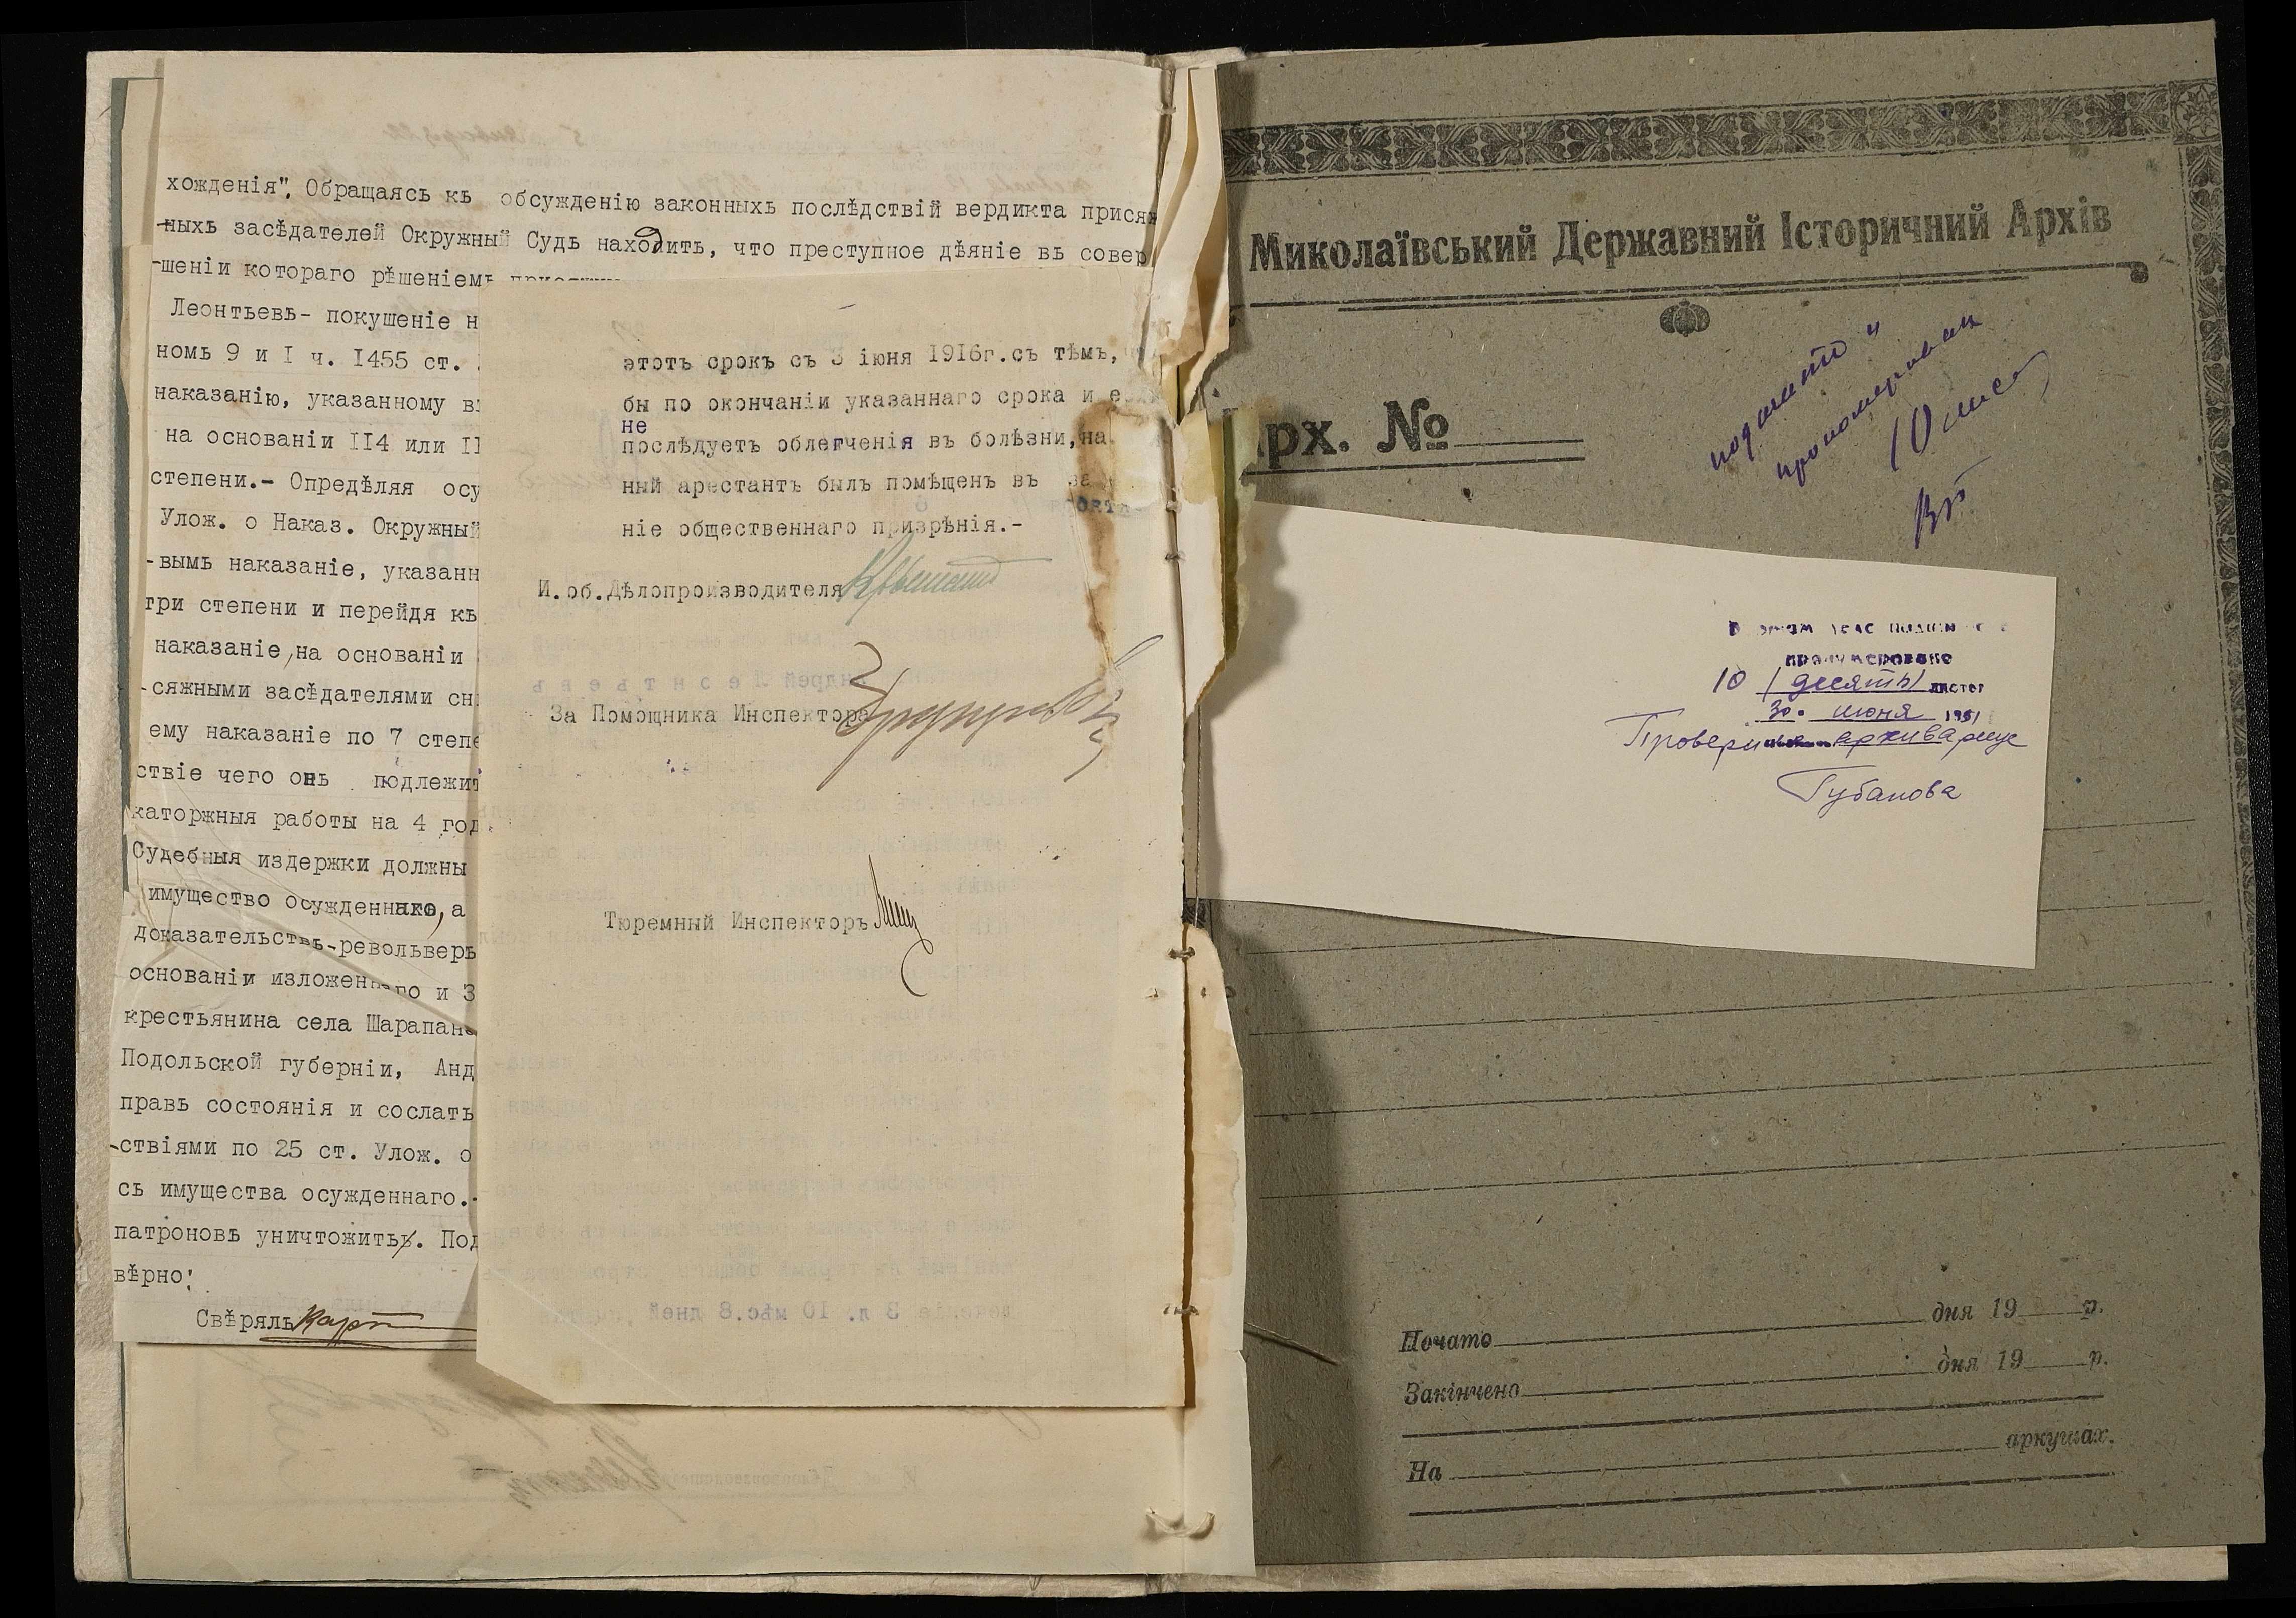 хожденія". Обращаясь къ обсужденію законныхъ послѣдствій вердикта прися
ныхъ засѣдателей Окружный Судъ находитъ, что преступное дѣяніе въ совер
-шеніи котораго рѣшеніемъ
Леонтьевъ- покушеніе н
номъ 9 и I ч. 1455 ст.
наказанію, указанному в
на основаніи II4 или II
степени.- Опредѣляя осу
Улож. о Наказ. Окружный
-вымъ наказаніе, указанн
три степени и перейдя къ
наказаніе, на основаніи
-сяжными засѣдателями сн
ему наказаніе по 7 степе
ствіе чего онъ подлежит
каторжныя работы на 4 год
Судебныя издержки должны
имущество осужденнаго, а
доказательствъ-револьверъ
основаніи изложеннаго и З
крестьянина села Шарапан
Подольской губерніи, Анд
правъ состоянія и сослать
-ствіями по 25 ст. Улож. о
съ имущества осужденнаго.-
патроновъ уничтожить. Под
вѣрно:
Свѣрялъ
этотъ срокъ съ 3 іюня 1916г.съ тѣмъ,
бы по окончаніи указаннаго срока и е
не
послѣдуетъ облегченія въ болѣзни, на
ный арестантъ былъ помѣщенъ въ за
ніе общественнаго призрѣнія.-
И. об. Дѣлопроизводителя
За Помощника Инспектора
Тюремный Инспекторъ
Миколаївський Державний Історичний Архів
Арх. №
подшито и
пронумерован
10 лис
В этом деле подшито и
пронумеровано
10 (десять) листов
30. июня 1951
Проверил архивариус
Губанова
Почато дня 19 р.
Закінчено дня 19 р.
На аркушах.